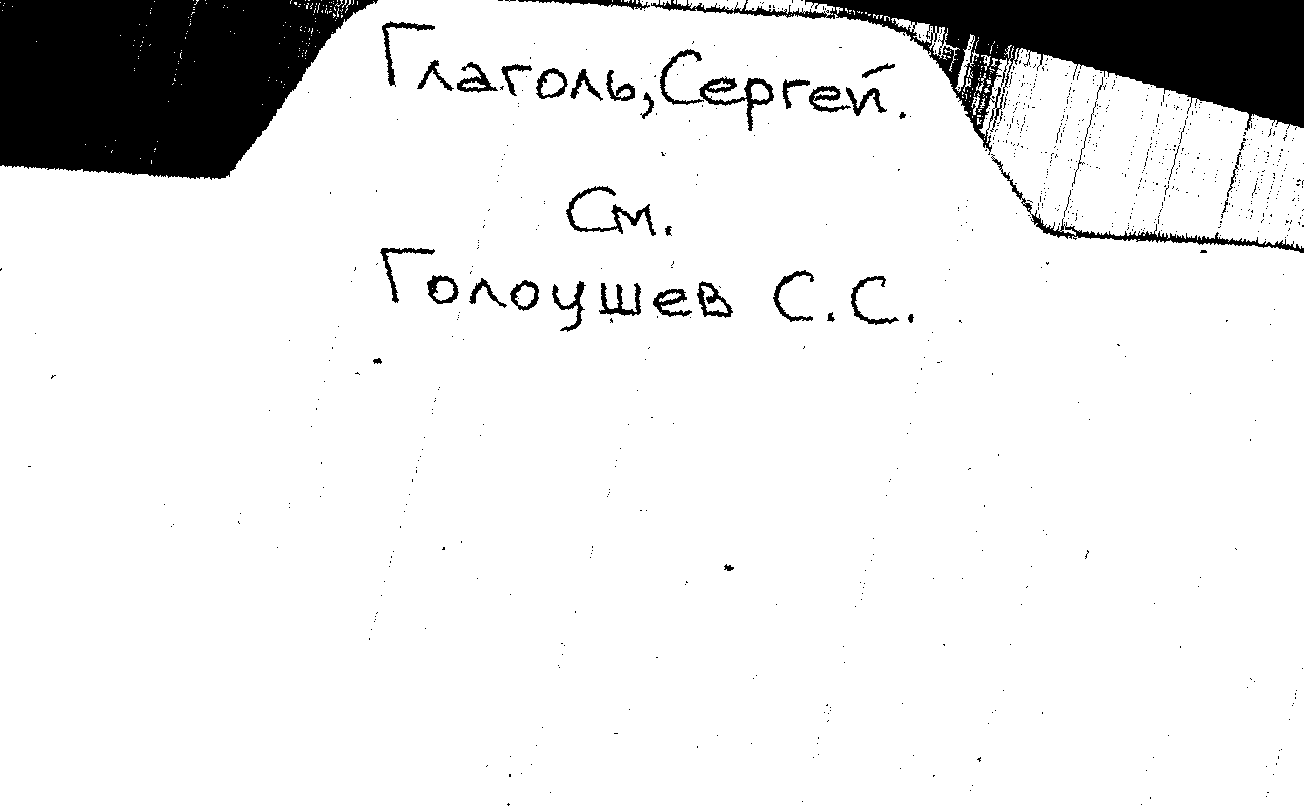 Глаголь, Сергей.
См.
Голоушев С.С.